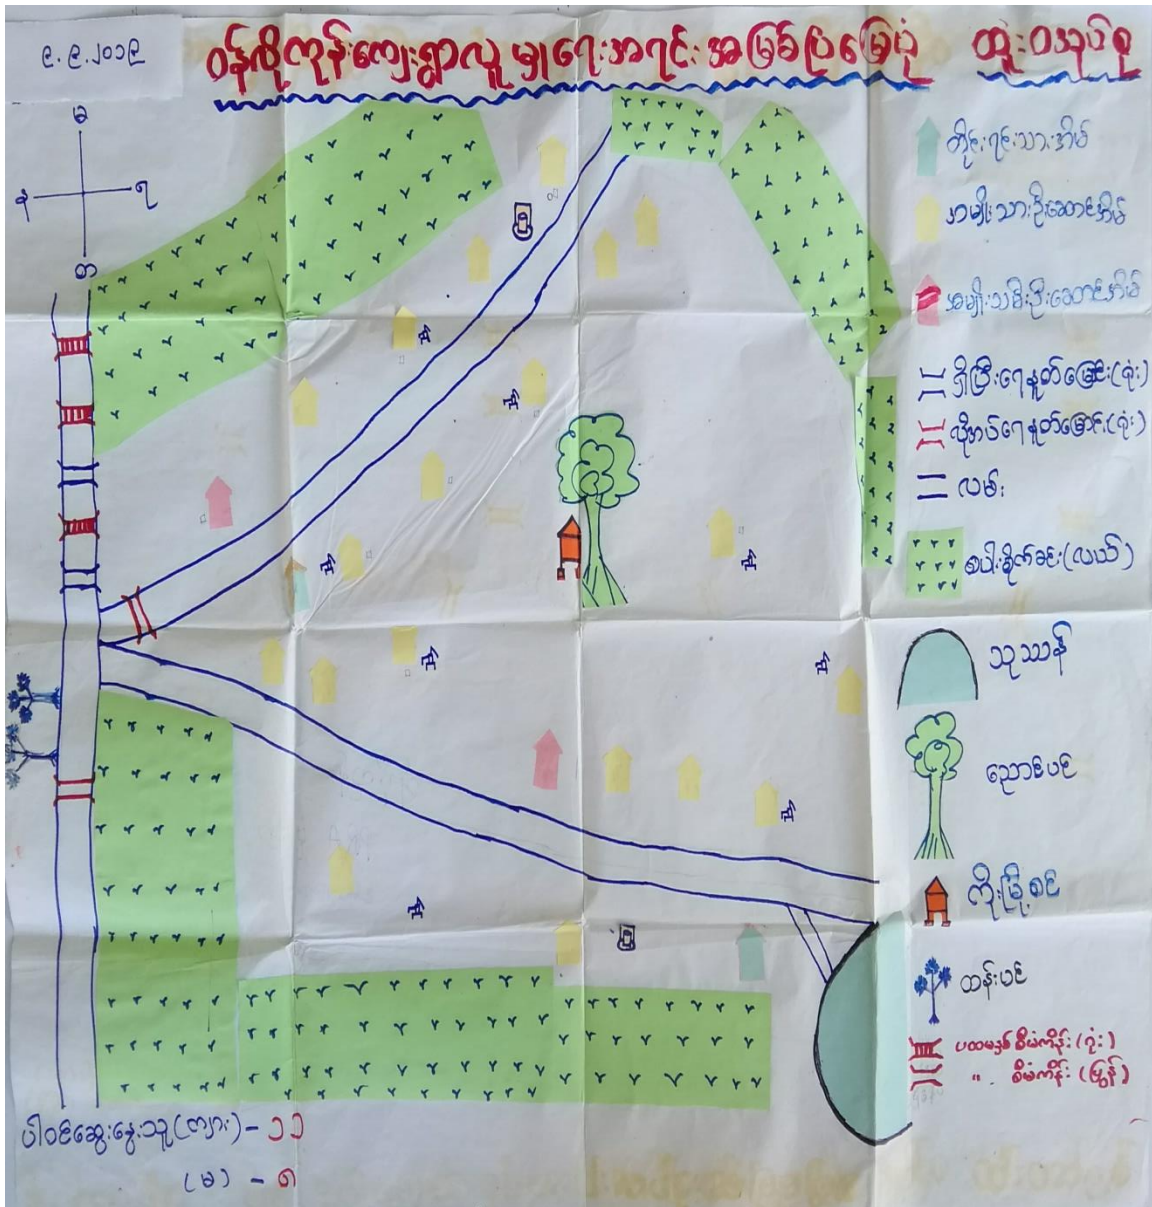 ၉.၉.၂၀၁၉
ဝန်လိုကုန်းကျေးရွာလူမှုရေးအရင်းအမြစ်ပြမြေပုံ
မ
န
ရ
တ
တိုင်းရင်းသားအိမ်
အမျိုးသားဦးဆောင်အိမ်
အမျိုးသမီးဦးဆောင်အိမ်
ရှိပြီးရေနုတ်မြောင်း(ဂုံး)
လိုအပ်ရေနုတ်မြောင်း(ဂုံး)
လမ်း
စပါးစိုက်ခင်း(လယ်)
သုဿန်
ညောင်ပင်
ကိုးမြို့စင်
ထန်းပင်
ပထမနှစ်စီမံကိန်း(ဂုံး)
" စီမံကိန်း(မြွန်)
ပါဝင်ဆွေးနွေးသူ(ကျား)-၁၁
(မ) - ၈